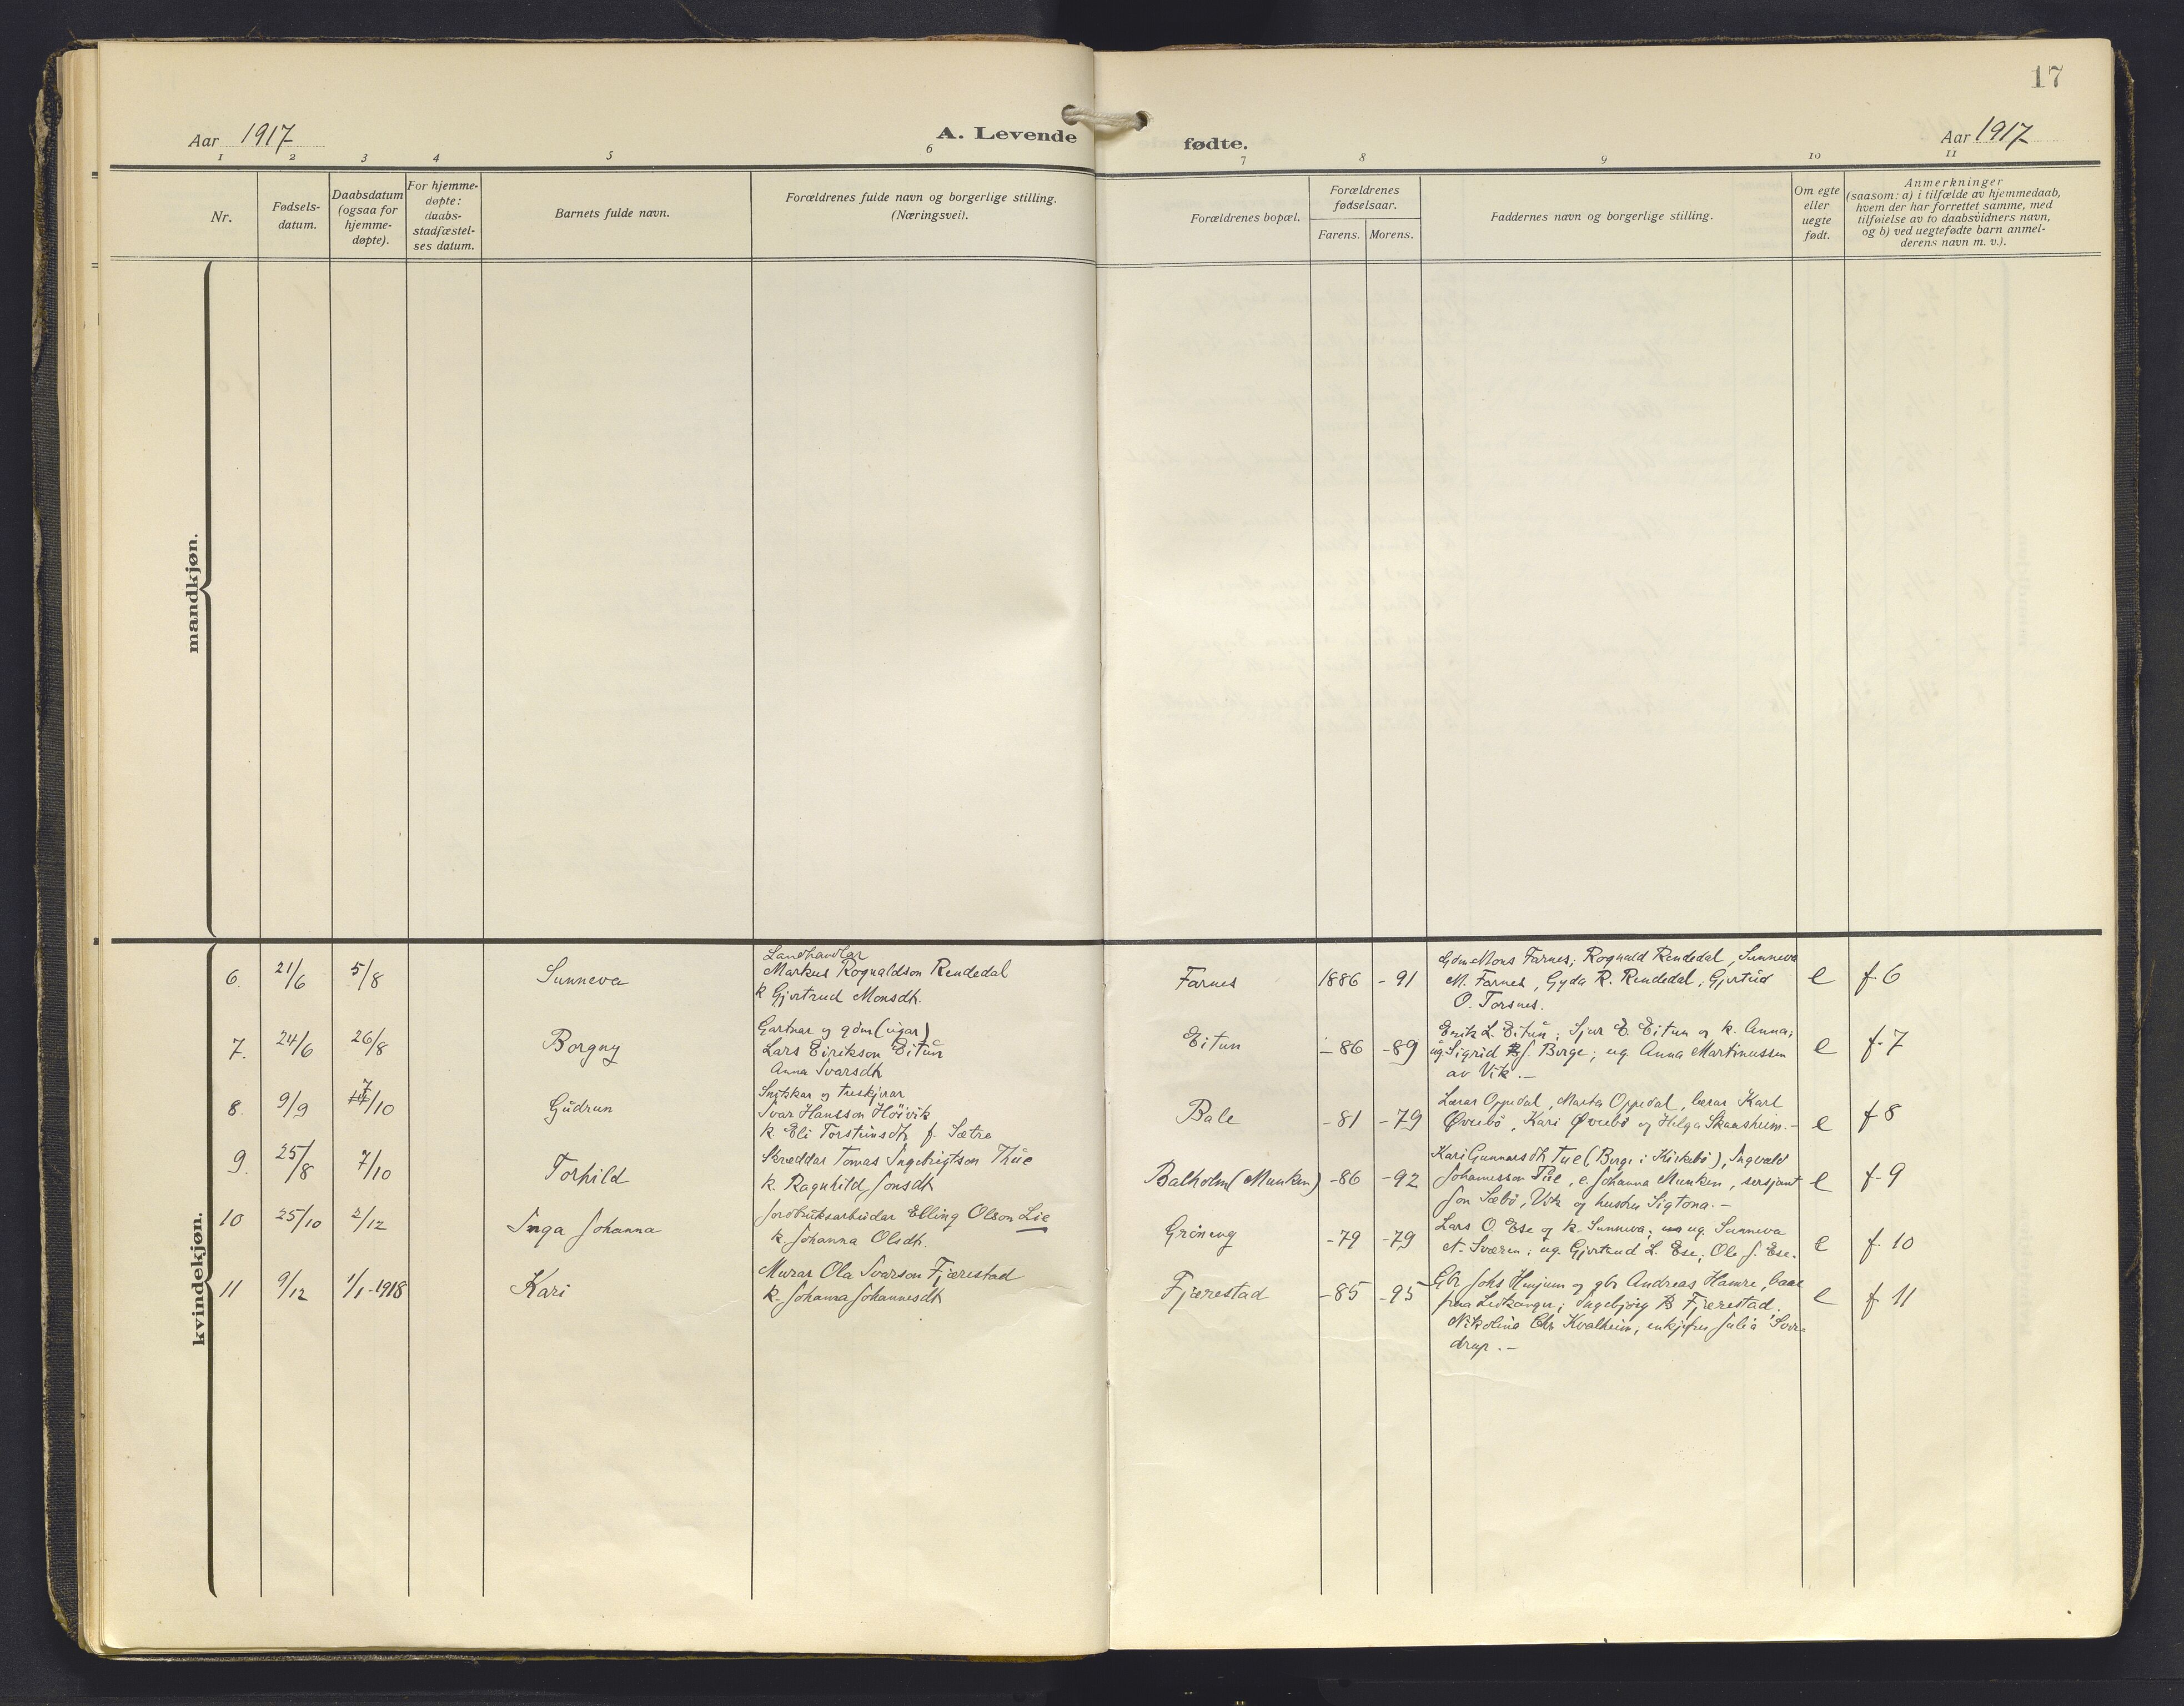 17
Aar 1917
A. Levende fødte.
Aar 1917
1 2 3 4 5 6 7 8 9 10 11
Nr.
Fødsels-
datum.
Daabsdatum
(ogsaa for
hjemme-
døpte).
For hjemme-
døpte:
daabs-
stadfæstel-
ses datum.
Barnets fulde navn.
Forældrenes fulde navn og borgerlige stilling.
(Næringsvei).
Forældrenes bopæl.
Forældrenes
fødselsaar.
Farens. Morens.
Faddernes navn og borgerlige stilling.
Om egte
eller
uegte
født.
Anmerkninger
(saasom: a) i tilfælde av hjemmedaab,
hvem der har forrettet samme, med
tilføielse av to daabsvidners navn,
og b) ved uegtefødte barn anmel-
derens navn m. v.).
mandkjøn.
kvindekjøn.
6. 21/6 5/8 Sunneva
Landhandlar
Markus Rognaldson Rendedal
k Gjertrud Monsdtr.
Farnes 1886 -91
Gdm Mons Farnes; Rognald Rendedal, Sunneva
M. Farnes, Gyda R. Rendedal, Gjertrud
O. Torsnes.
e f. 6
7. 24/6 26/8 Borgny
Gartnar og gdm (ugar)
Lars Eirikson Eitun
Anna Ivarsdtr
Eitun -86 -89
Eirik L. Eitun; Sjur E. Eitun og k. Anna;
ug. Sigrid J. Berge; ug Anna Martinussen
av Vik.-
e f. 7
8. 9/9 7/10 Gudrun
Snikkar og treskjerar
Ivar Hansson Høivik
k. Eli Torsteinsdtr f. Sætre
Bale -81 -79
Lærar Oppedal, Marta Oppedal, lærar Karl
Øvrebø, Kari Øvrebø og Helga Skansheim.-
e f 8
9. 25/8 7/10 Torhild
Skræddar Tomas Ingebrigtson Thue
k. Ragnhild Jonsdtr
Balholm (Munken) -86 -92
Kari Gunnarsdtr Tue (Berge i Kirkebø), Ingvald
Johannesson Tue, e. Johanna Munken, sersjant
Jon Sæbø, Vik og hustru Sigtona.-
e f. 9
10 25/10 2/12 Inga Johanna
Jordbruksarbeidar Elling Olson Lie
k. Johanna Olsdtr.
Grøneng -79 -79
Lars O. Ese og k. Sunneva; ug. Sunneva
A. Sværen; ug. Gjertrud L. Ese; Ole J. Ese.
e f. 10
11 9/12 1/1-1918 Kari
Murar Ola Ivarson Fjærestad
k. Johanna Johannesdtr
Fjærestad -85 -95
Gbr Johs Henjum og gbr Andreas Hamre, baae
fraa Leikanger; Ingebjørg B Fjærestad.
Nikolina Chr Kvalheim; enkjefru Julia Sver-
drup.-
e f 11